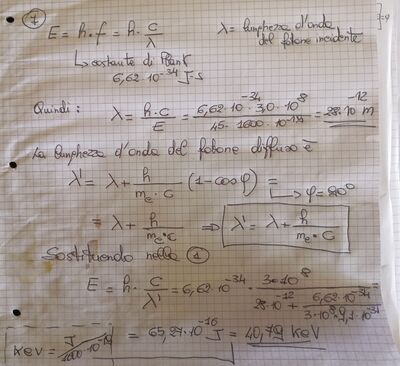 1
E = h·f = h· c/λ    λ = lunghezza d'onda del fotone incidente
↳ costante di Plank
6,62·10^-34 J s
Quindi: λ = h·c/E = 6,62·10^-34 · 3,0·10^8 / 45· 1600·10^-19 = 28·10^-12 m
La lunghezza d'onda del fotone diffuso è
λ' = λ + h/(me·c) (1-cosφ) = ↳ φ=90°
= λ + h/(me·c) ⇒ λ' = λ + h/(me·c)
Sostituendo nella 1
E = h· c/λ' = 6,62·10^-34 · 3·10^8 / (28·10^-12 + 6,62·10^-34/(3·10^8·9,1·10^-31)) =
KeV = J/1600·10^-19 = 65,27·10^-16 J = 40,79 KeV